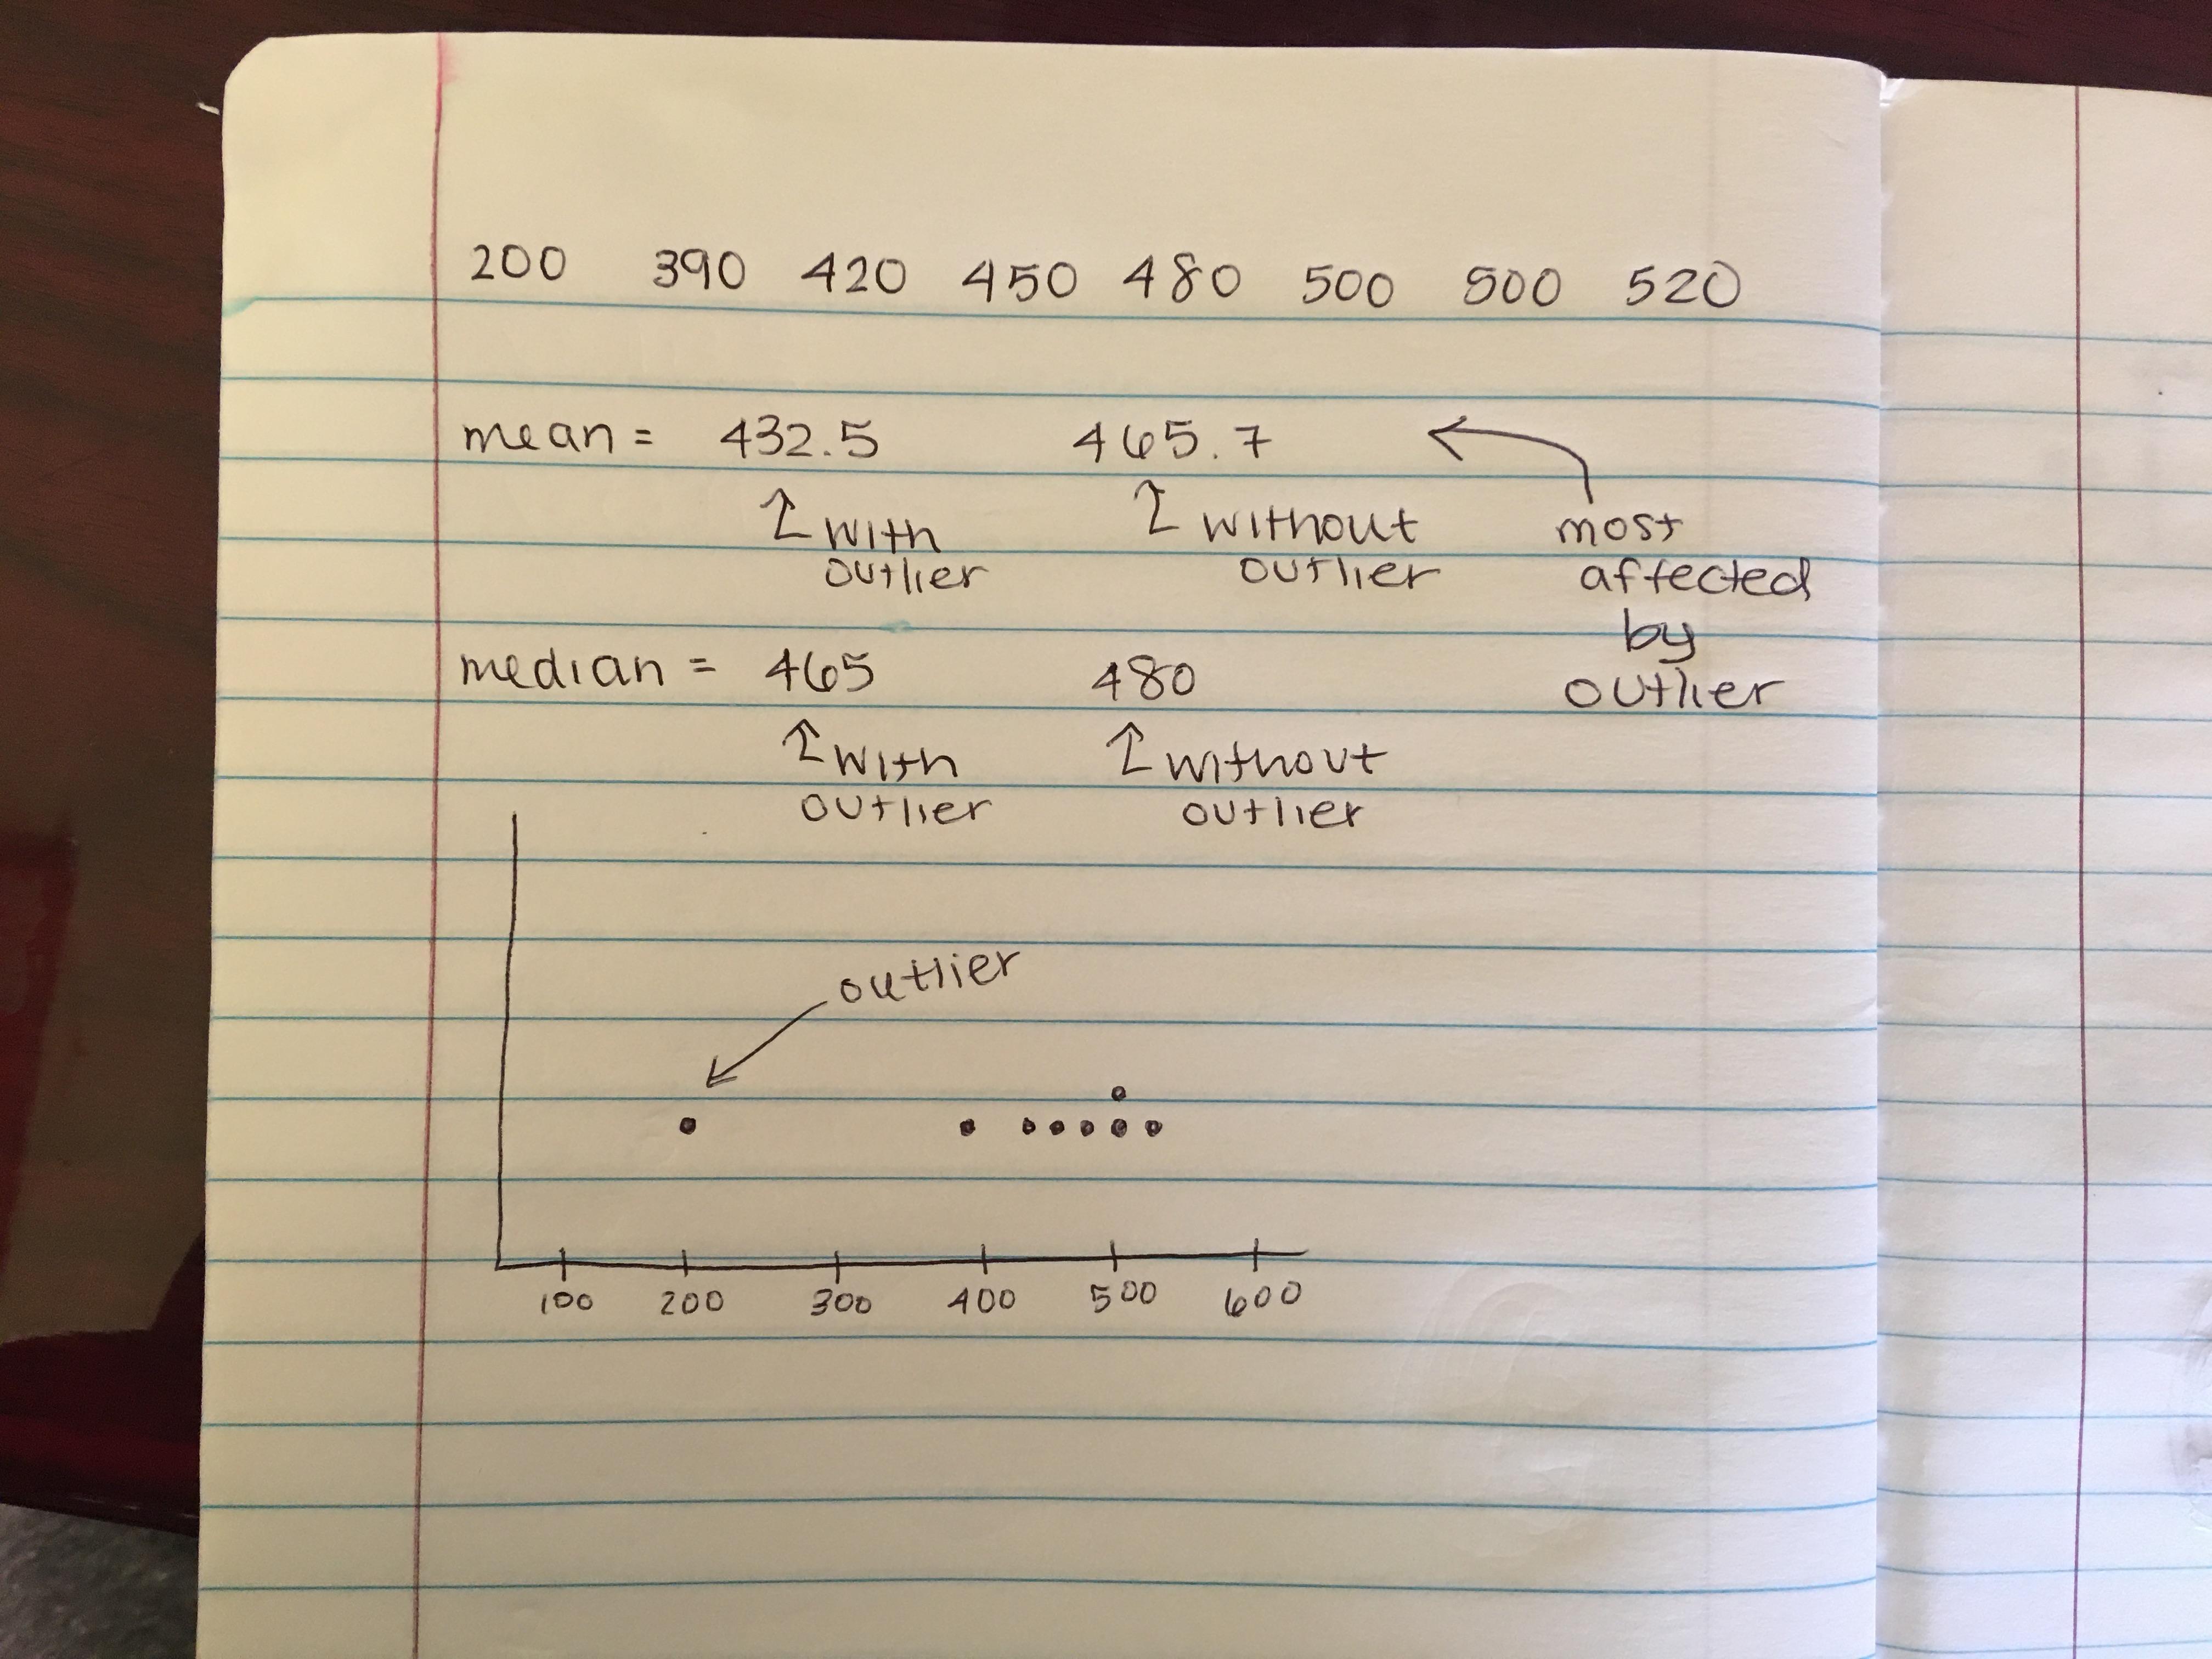 200 390 420 450 480 500 500 520
mean = 432.5 465.7
with without most
outlier outlier affected
by
median = 465 480 outlier
with without
outlier outlier
outlier
100 200 300 400 500 600